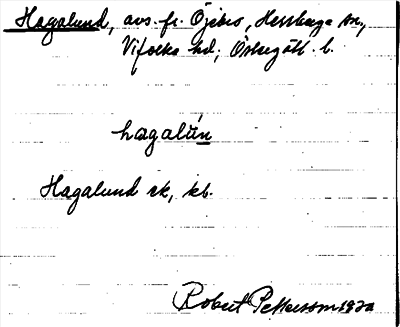 Hagalund, avs. fr. Öjebro, Herrberga sn,
Vifolka hd; Östergötl. l.
hagalún
Hagalund ek, kb.
Robert Pettersson 1920